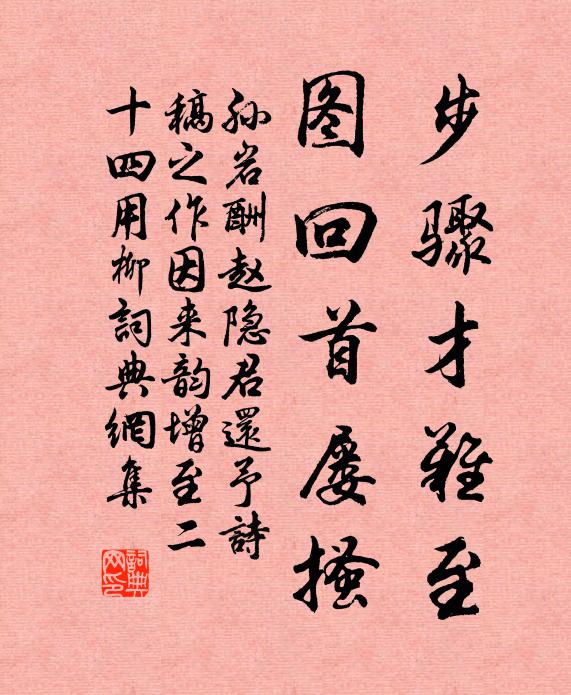 步骤才难至
图回首屡搔
孙岩酬赵隐君還予詩
稿之作因来韵增至二
十四用柳詞典網集
詞典网印